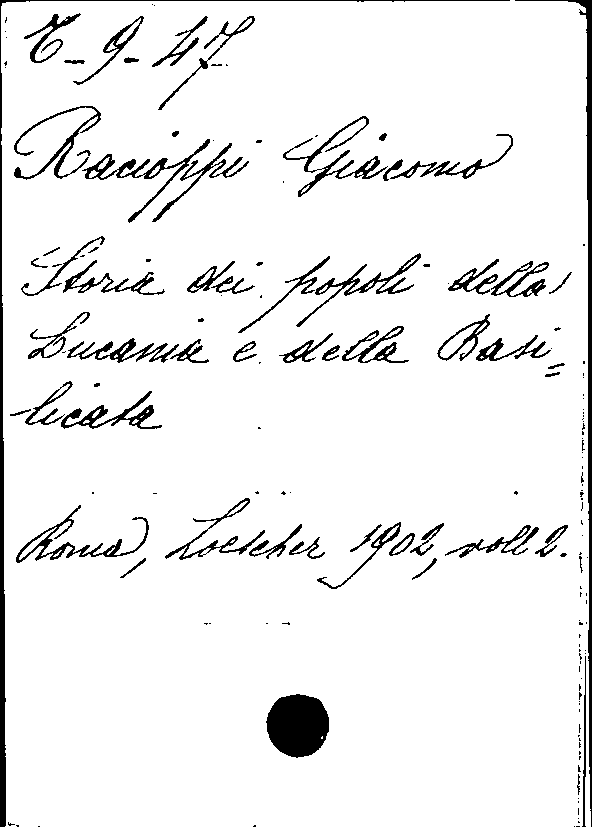 E-9-47
Racioppi Giacomo
Storia dei popoli della
Lucania e della Basi=
licata
Roma, Loescher 1902, voll 2.